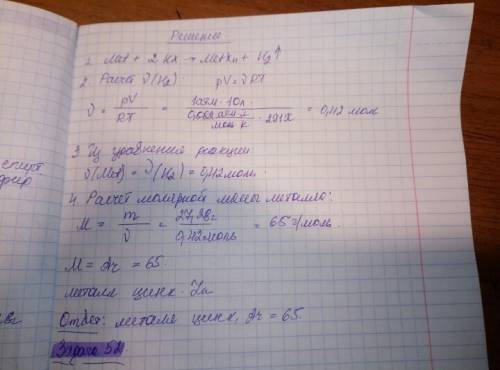 Решение
1. Met + 2HX → MetXn + H2↑
2. Расчет ν(H2) pV = νRT
ν = pV / RT = 1атм · 10л / 0,082 атм·л / моль·К · 291К = 0,42 моль
3. Из уравнения реакции
спирт
ν(Met) = ν(H2) = 0,42моль.
4. Расчет молярной массы металла:
M = m / ν = 27,28г / 0,42моль = 65г/моль.
M = Ar = 65.
металл цинк. Zn
Ответ: металл цинк, Ar = 65.
Задача 52